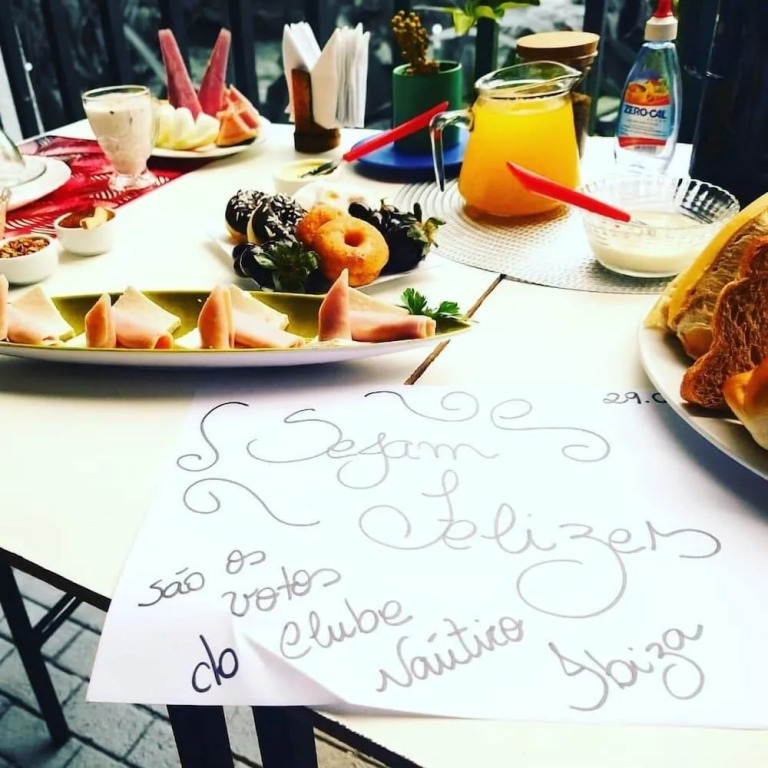 ZERO-CAL
29.0
Sejam
Felizes
são os
votos
do Clube
Náutico Ibiza